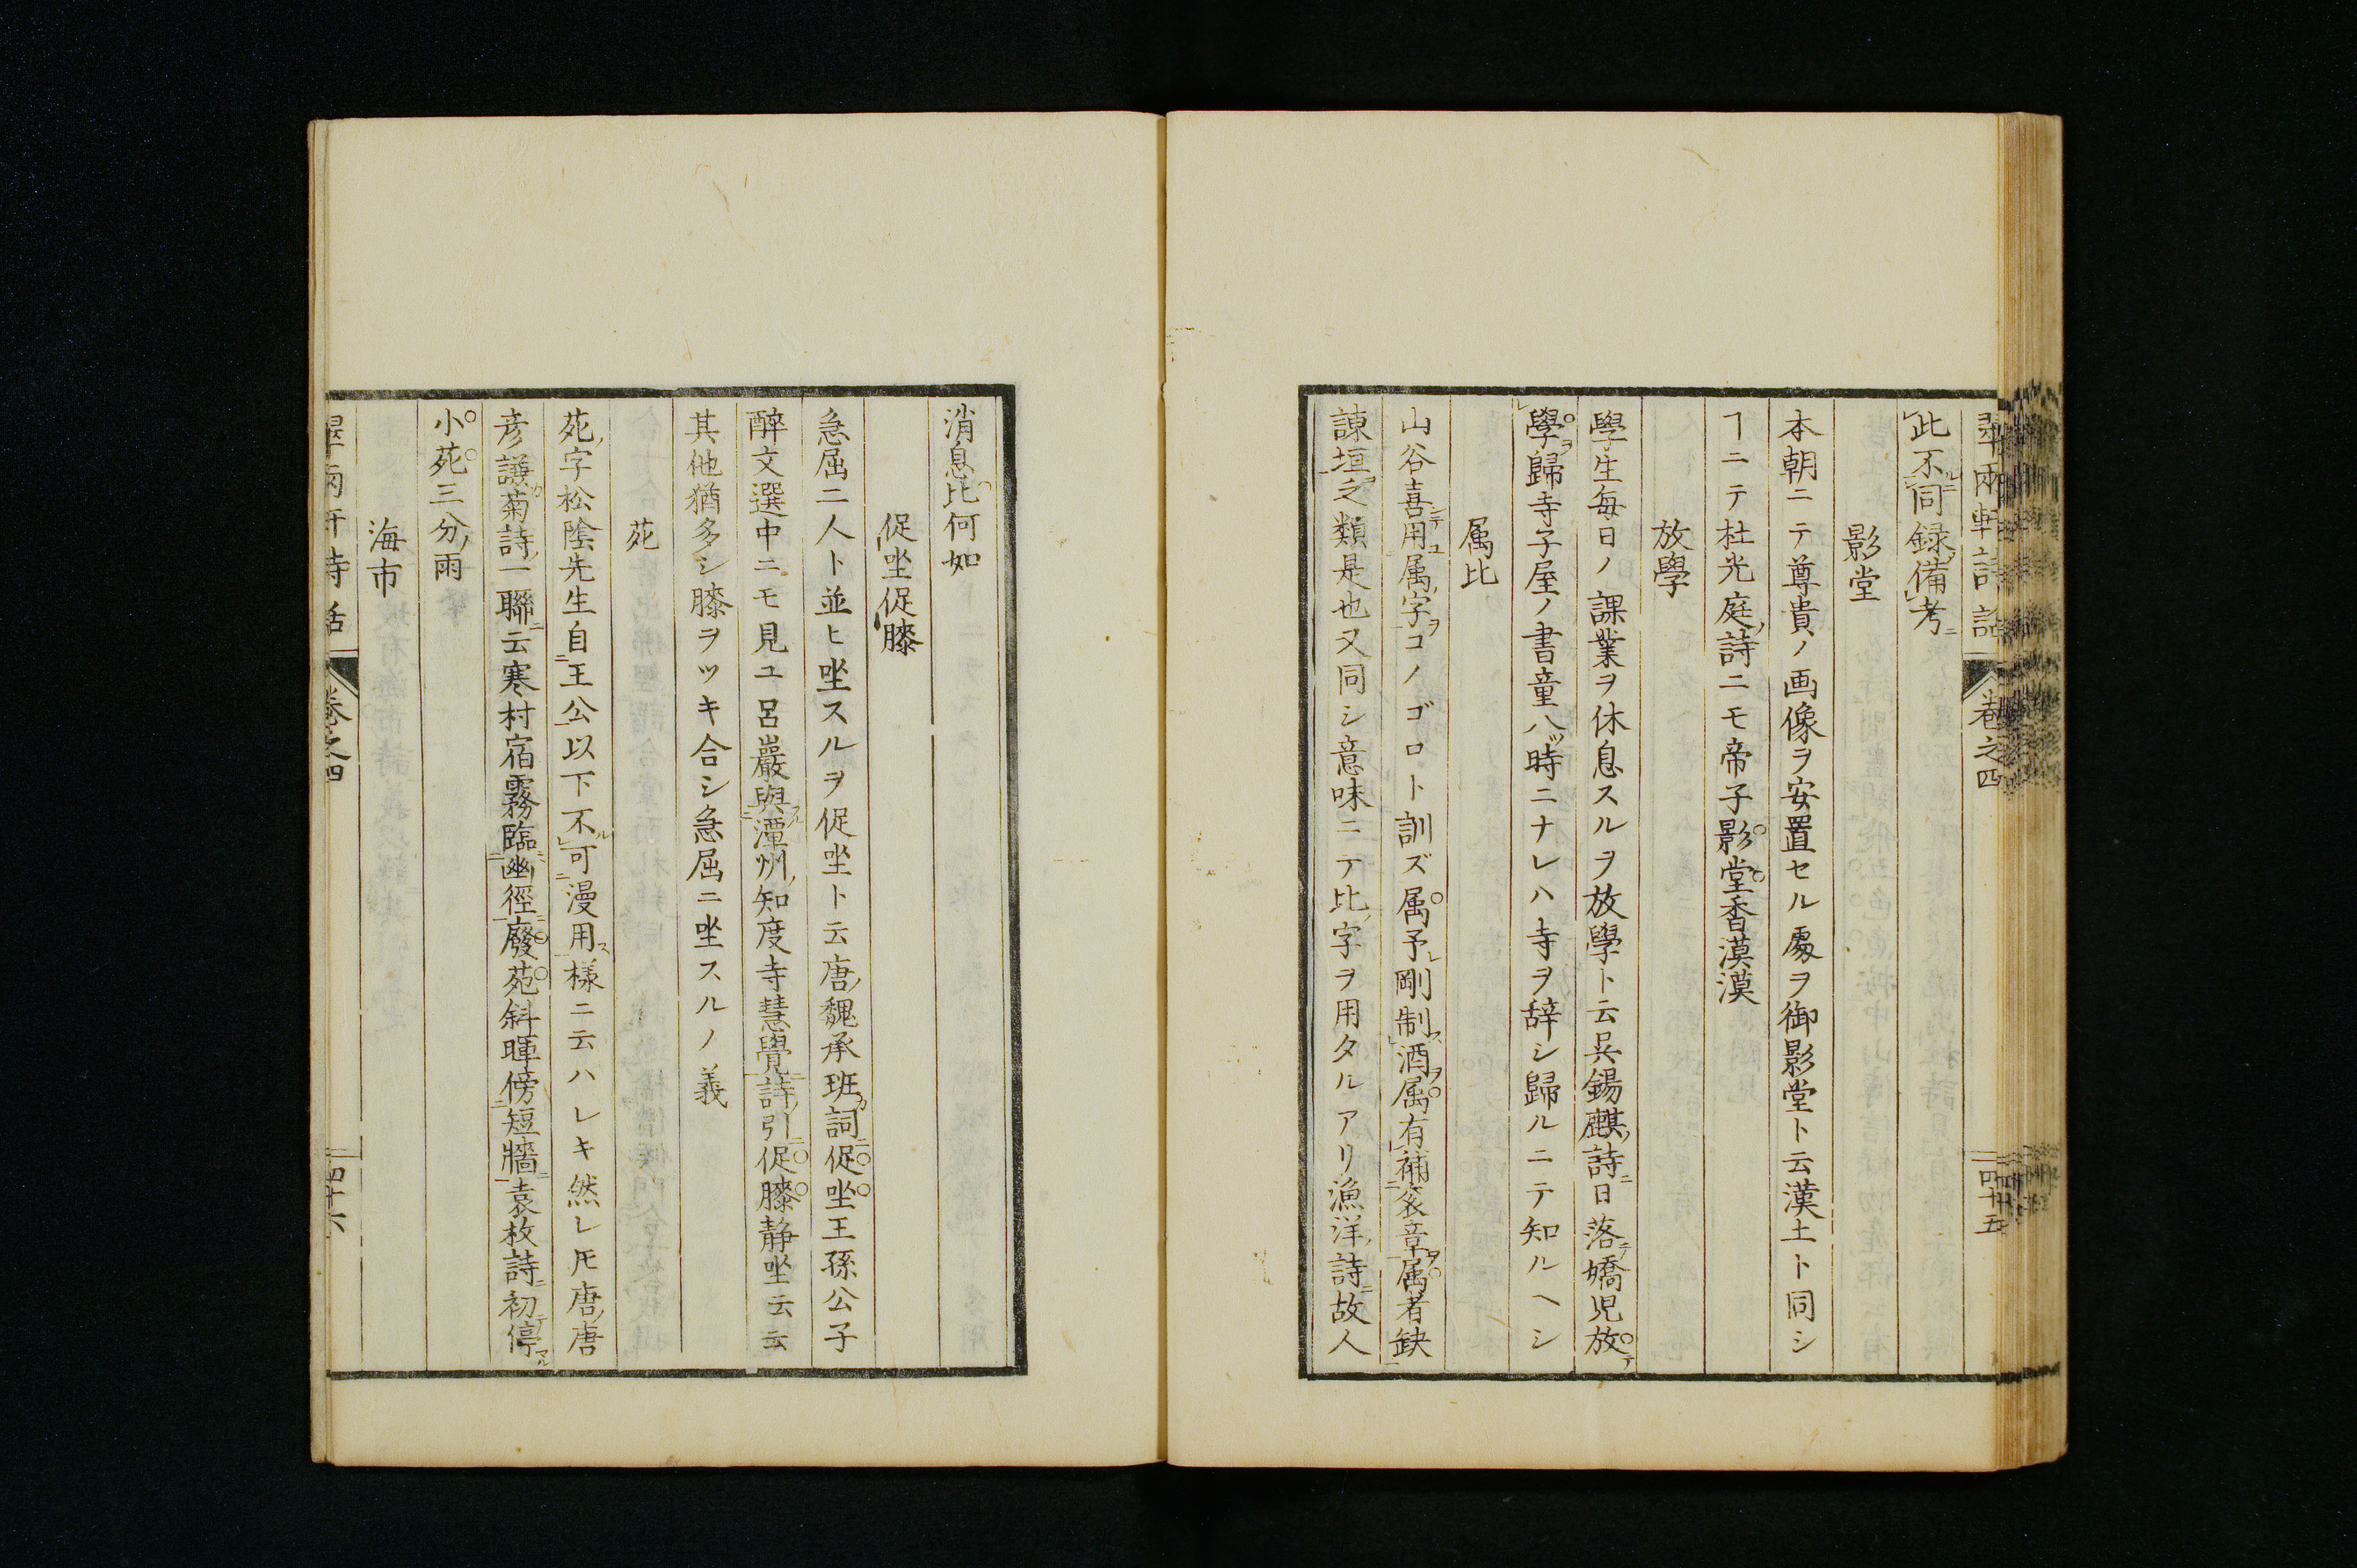 卷之四
四十五
此不同録備考
影堂
本朝ニテ尊貴ノ画像ヲ安置セル處ヲ御影堂ト云漢土ト同シ
ヿニテ杜光庭ノ詩ニモ帝子影堂香漠漠
放學
學生毎日ノ課業ヲ休息スルヲ放學ト云呉錫麒ノ詩ニ日落嬌児放
學歸寺子屋ノ書童八ツ時ニナレハ寺ヲ辞シ歸ルニテ知ルヘシ
属比
山谷喜用属ノ字ヲコノゴロト訓ズ属予剛制酒属有補衮章属者缺
諌垣之類是也又同シ意味ニテ比ノ字ヲ用タルアリ漁洋ノ詩ニ故人
消息比何如
促坐促膝
急屈二人ト並ヒ坐スルヲ促坐ト云唐ノ魏承班カ詞ニ促坐王孫公子
醉文選中ニモ見ユ呂巖與潭州ノ知度寺慧覺詩ノ引ニ促膝静坐云云
其他猶多シ膝ヲツキ合シ急屈ニ坐スルノ義
苑
苑ノ字松陰先生自王公以下不可漫用様ニ云ハレキ然レ𪜈唐ノ唐
彦謙カ菊詩ノ一聯ニ云寒村宿霧臨幽徑廢苑斜暉傍短牆袁枚詩ニ初停
小苑三分ノ雨
海市
卷之四
四十六